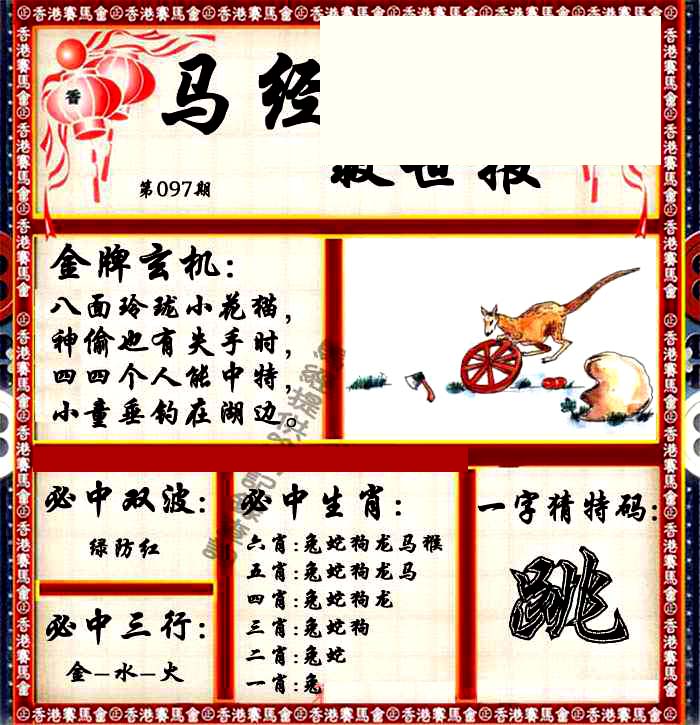 香港賽馬會 香港賽馬會 香港賽馬會 香港賽馬會 香港賽馬會 香港賽馬會
香
马经
救世报
第097期
金牌玄机：
八面玲珑小花猫，
神偷也有失手时，
四四个人能中特，
小童垂钓在湖边。
必中双波：
绿防红
必中三行：
金–水–火
必中生肖：
六肖:兔蛇狗龙马猴
五肖:兔蛇狗龙马
四肖:兔蛇狗龙
三肖:兔蛇狗
二肖:兔蛇
一肖:兔
一字猜特码：
跳